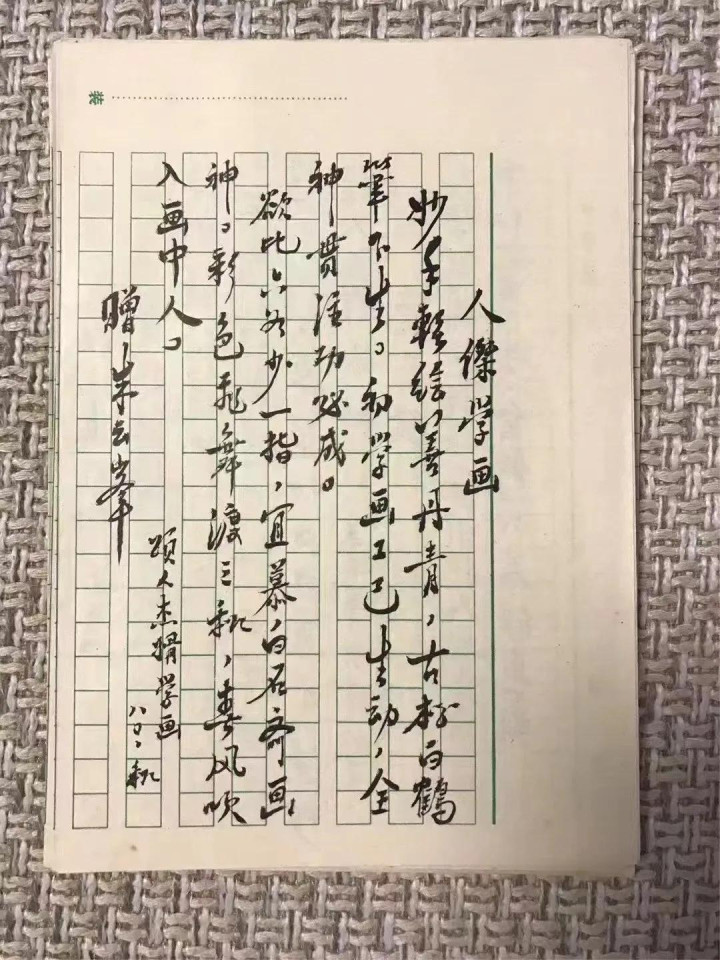 人傑学画
妙手轻绘善丹青，古松白鹤
笔下生。初学画工已生动，全
神贯注功必成。
欲比六爻少一指，宜慕白石齐画
神。彩色飞舞渡三秋，春风吹
入画中人。
赠朱云峯
颂人杰婿学画
八〇、秋
装